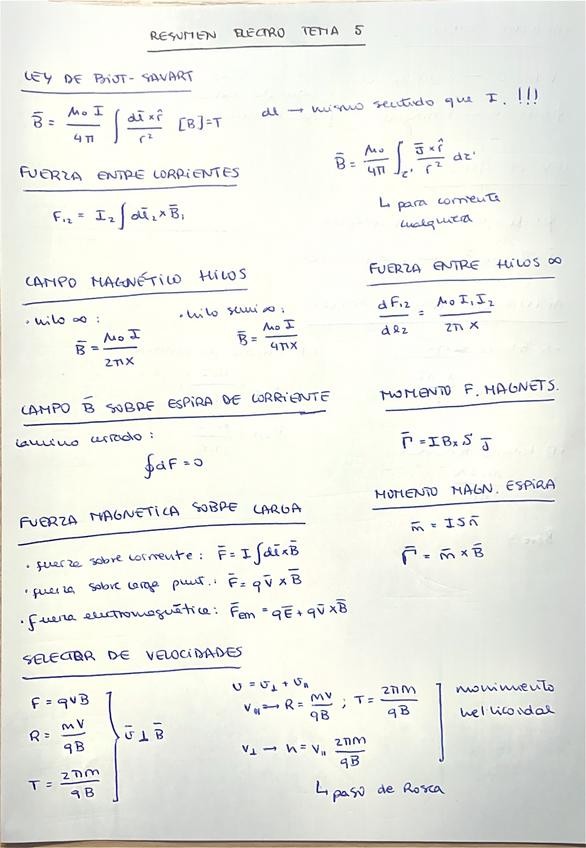 RESUMEN ELECTRO TEMA 5
LEY DE BIOT-SAVART
B̄ = μ₀ I / 4π ∫ dl̄ × r̂ / r² [B]=T
dl → mismo sentido que I. !!!
B̄ = μ₀ / 4π ∫τ' J̄ × r̂ / r² dτ'
↳ para corriente
cualquiera
FUERZA ENTRE CORRIENTES
F₁₂ = I₂ ∫ dl̄₂ × B̄₁
CAMPO MAGNÉTICO HILOS
· hilo ∞ :
B̄ = μ₀ I / 2πx
· hilo semi ∞ :
B̄ = μ₀ I / 4πx
FUERZA ENTRE HILOS ∞
dF₁₂ / dl₂ = μ₀ I₁ I₂ / 2π x
CAMPO B̄ SOBRE ESPIRA DE CORRIENTE
camino cerrado :
∮dF = 0
MOMENTO F. MAGNETS.
Γ̄ = I B x S j̄
MOMENTO MAGN. ESPIRA
m̄ = I S n̄
Γ̄ = m̄ × B̄
FUERZA MAGNETICA SOBRE CARGA
· fuerza sobre corriente : F̄ = I ∫ dl̄ × B̄
· fuerza sobre carga punt. : F̄ = q v̄ × B̄
· fuerza electromagnética : F̄em = qĒ + q v̄ × B̄
SELECTOR DE VELOCIDADES
F = qvB
R = mv / qB
T = 2πm / qB
v̄ ⊥ B̄
v = v⊥ + v∥
v∥ → R = mv / qB ; T = 2πm / qB
v⊥ → h = v∥ 2πm / qB
↳ paso de Rosca
movimiento
helicoidal